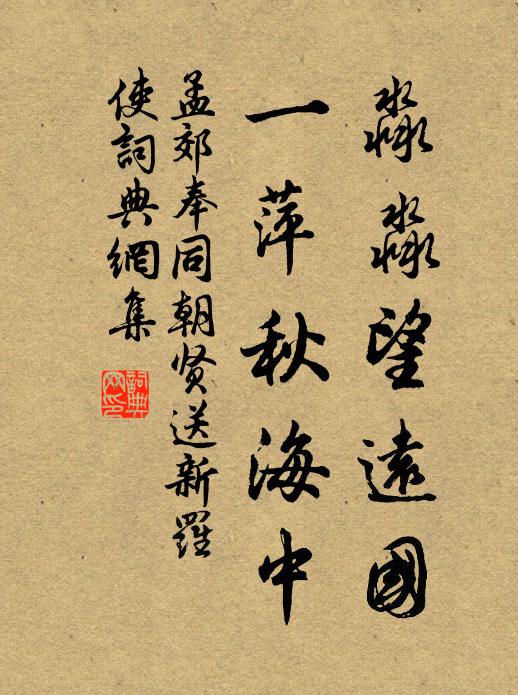 淼淼望遠國
一萍秋海中
孟郊奉同朝贤送新羅
使詞典網集
詞典
网印